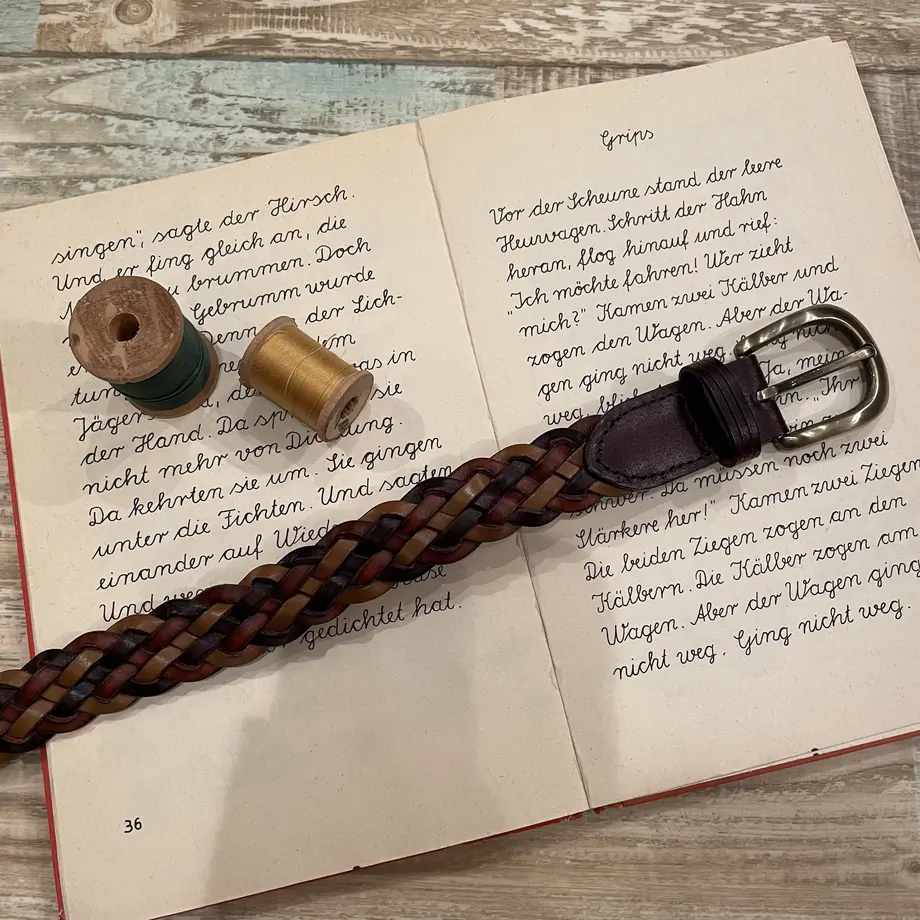 singen", sagte der Hirsch.
Und er fing gleich an, die
zu brummen. Doch
Gebrumm wurde
Denn der Lich-
dem
tun was in
Jäger sie
der Hand. Da
nicht mehr von
Da kehrten sie um. Sie gingen
unter die Fichten. Und sagten
einander auf
Und
gedichtet hat.
36
Grips
Vor der Scheune stand der leere
Heuwagen. Schritt der Hahn
heran, flog hinauf und rief:
"Ich möchte fahren! Wer zieht
mich?" Kamen zwei Kälber und
zogen den Wagen. Aber der Wa-
gen ging nicht weg.
weg, Ja, mein
"Ihr
Da müssen noch zwei
Stärkere her!" Kamen zwei Ziegen
Die beiden Ziegen zogen an den
Kälbern. Die Kälber zogen am
Wagen. Aber der Wagen ging
nicht weg. Ging nicht weg.